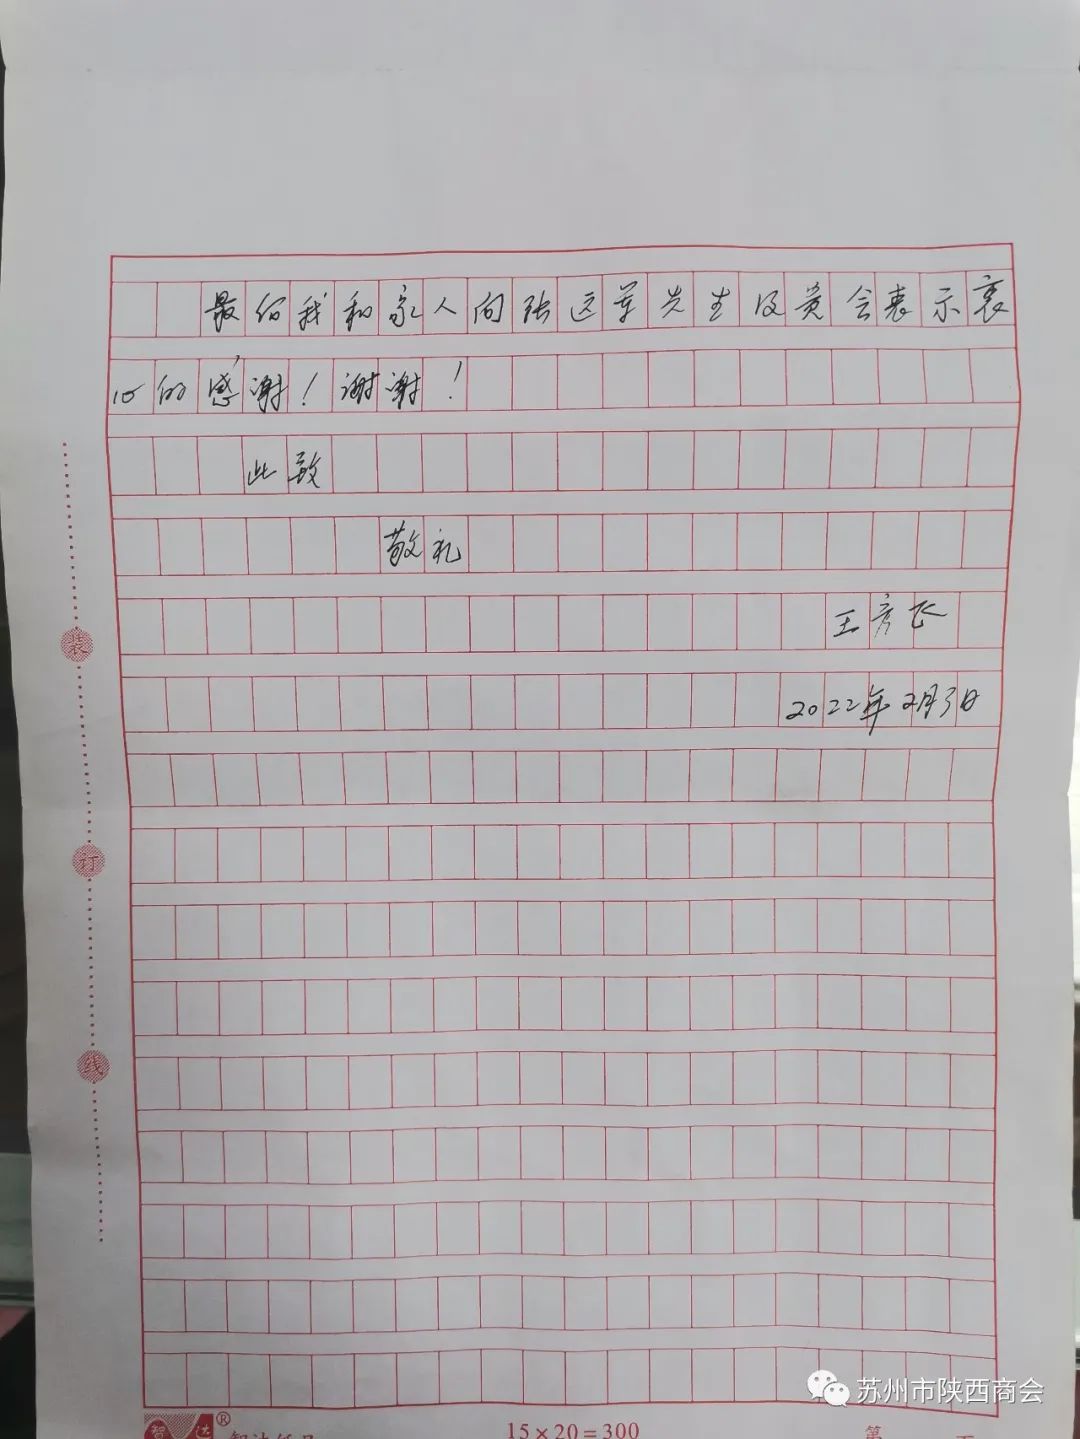 最后我和家人向张这军先生及贵会表示衷
心的感谢！谢谢！
此致
敬礼
王彦飞
2022年2月3日
装
订
线
智达®
15×20=300
第
苏州市陕西商会